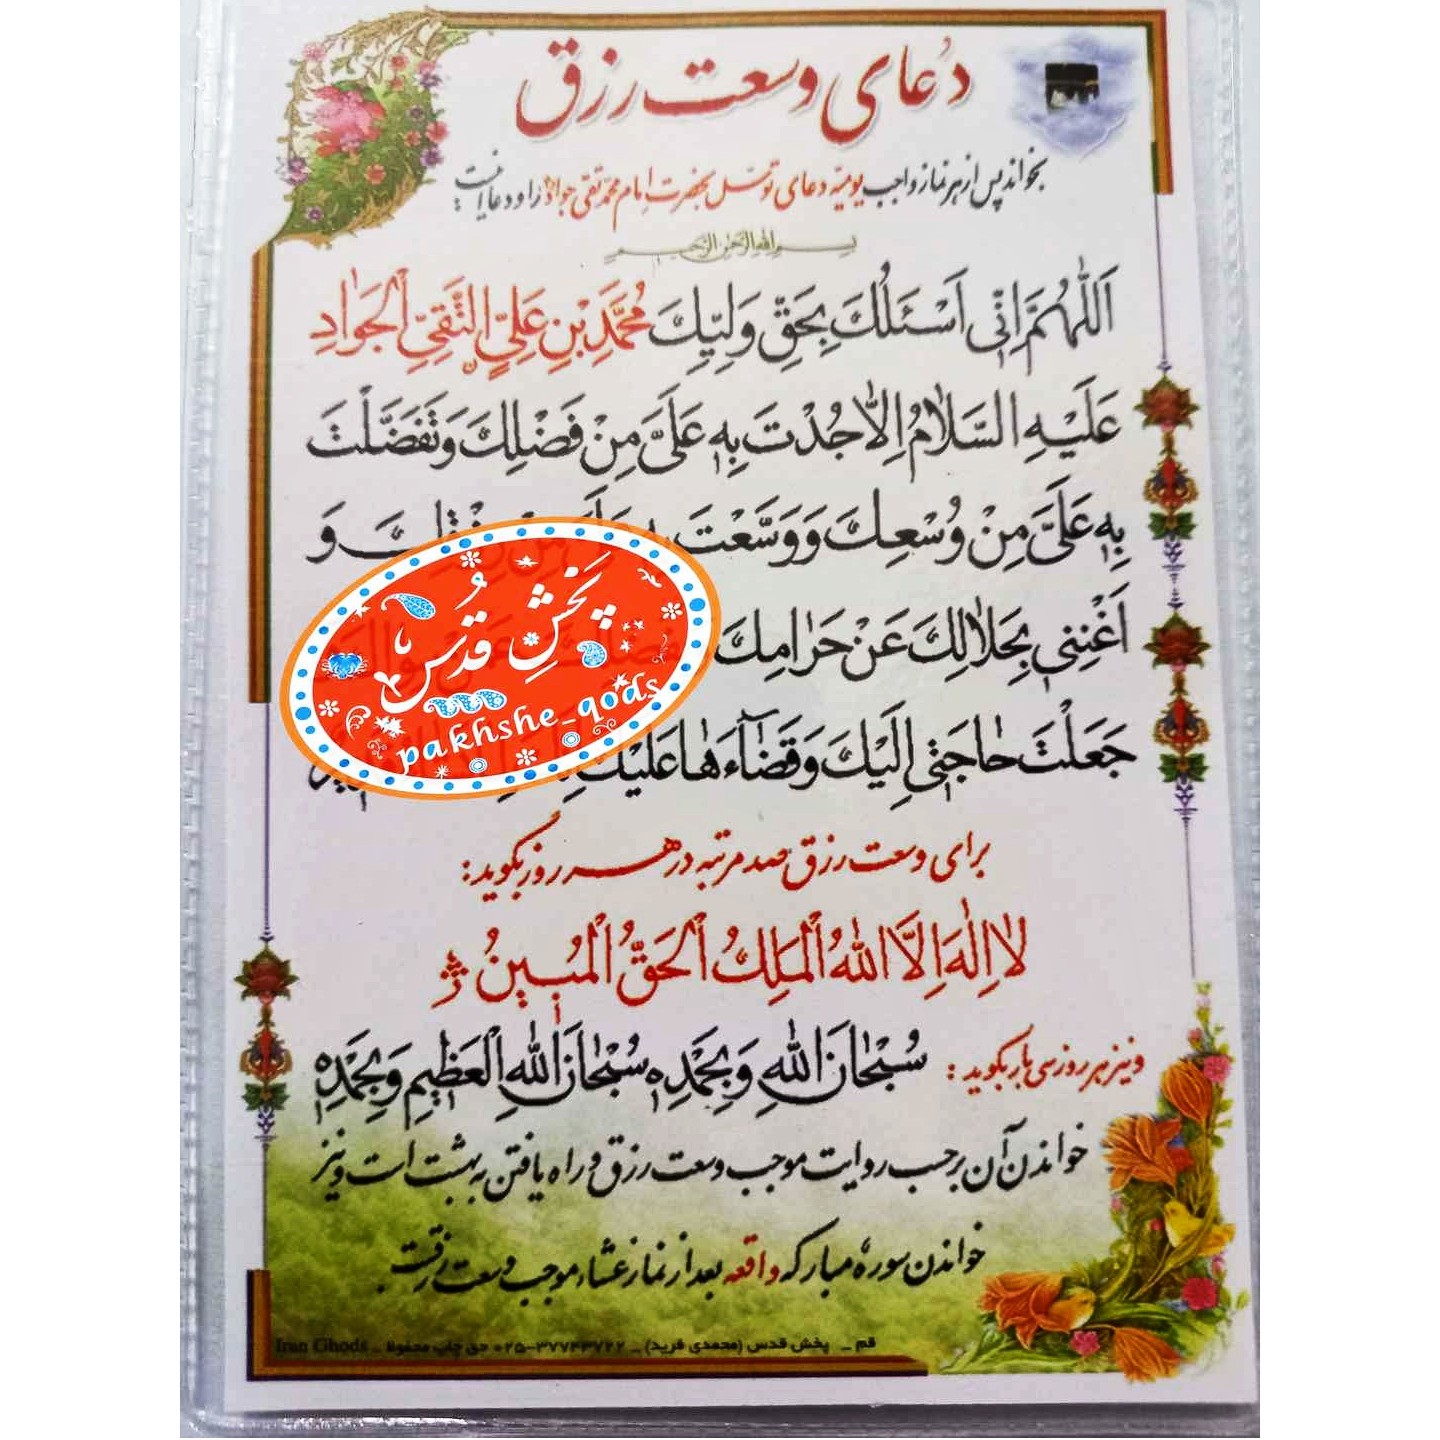 دعای وسعت رزق
بخواند پس از هر نماز واجب یومیّه دعای توسّل بحضرت امام محمّد تقی جواد را و دعا اینست
بسم الله الرحمن الرحیم
اَللّٰهُمَّ اِنّی اَسْئَلُكَ بِحَقِّ وَلِیِّكَ مُحَمَّدِ بْنِ عَلِیٍّ التَّقِیِّ الْجَوٰادِ
عَلَیْهِ السَّلاٰمُ اِلاّٰ جُدْتَ بِهِ عَلَیَّ مِنْ فَضْلِكَ وَ تَفَضَّلْتَ
بِهِ عَلَیَّ مِنْ وُسْعِكَ وَ وَسَّعْتَ و
اَغْنِنی بِحَلاٰلِكَ عَنْ حَرٰامِكَ
جَعَلْتَ حٰاجَتی اِلَیْكَ وَ قَضٰآءَهٰا عَلَیْكَ
پخشِ قُدس
pakhshe_qods
برای وسعت رزق صد مرتبه در هر روز بگوید:
لااِلٰهَ اِلَّا اللهُ الْمَلِكُ الْحَقُّ الْمُبینُ
و نیز هر روز سی بار بگوید: سُبْحٰانَ اللهِ وَ بِحَمْدِهِ سُبْحٰانَ اللهِ الْعَظیمِ وَ بِحَمْدِهِ
خواندن آن برحسب روایت موجب وسعت رزق و راه یافتن به بهشت است و نیز
خواندن سورهٔ مبارکه واقعه بعد از نماز عشاء موجب وسعت رزقست
قم _ پخش قدس (محمدی فرید) _ ۳۷۷۴۳۷۲۲-۰۲۵ حق چاپ محفوظ _ Iran Ghods